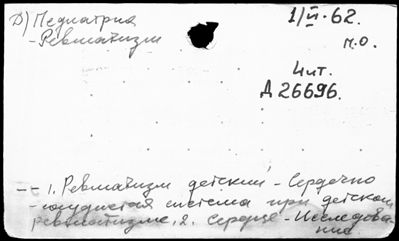 Д) Педиатрия
1/II-62.
- Ревматизм
м.о.
Чит.
Д 26696.
-- 1. Ревматизм детский - Сердечно
- сосудистая система при детском
ревматизме, 2. Сердце - Исследова-
ние